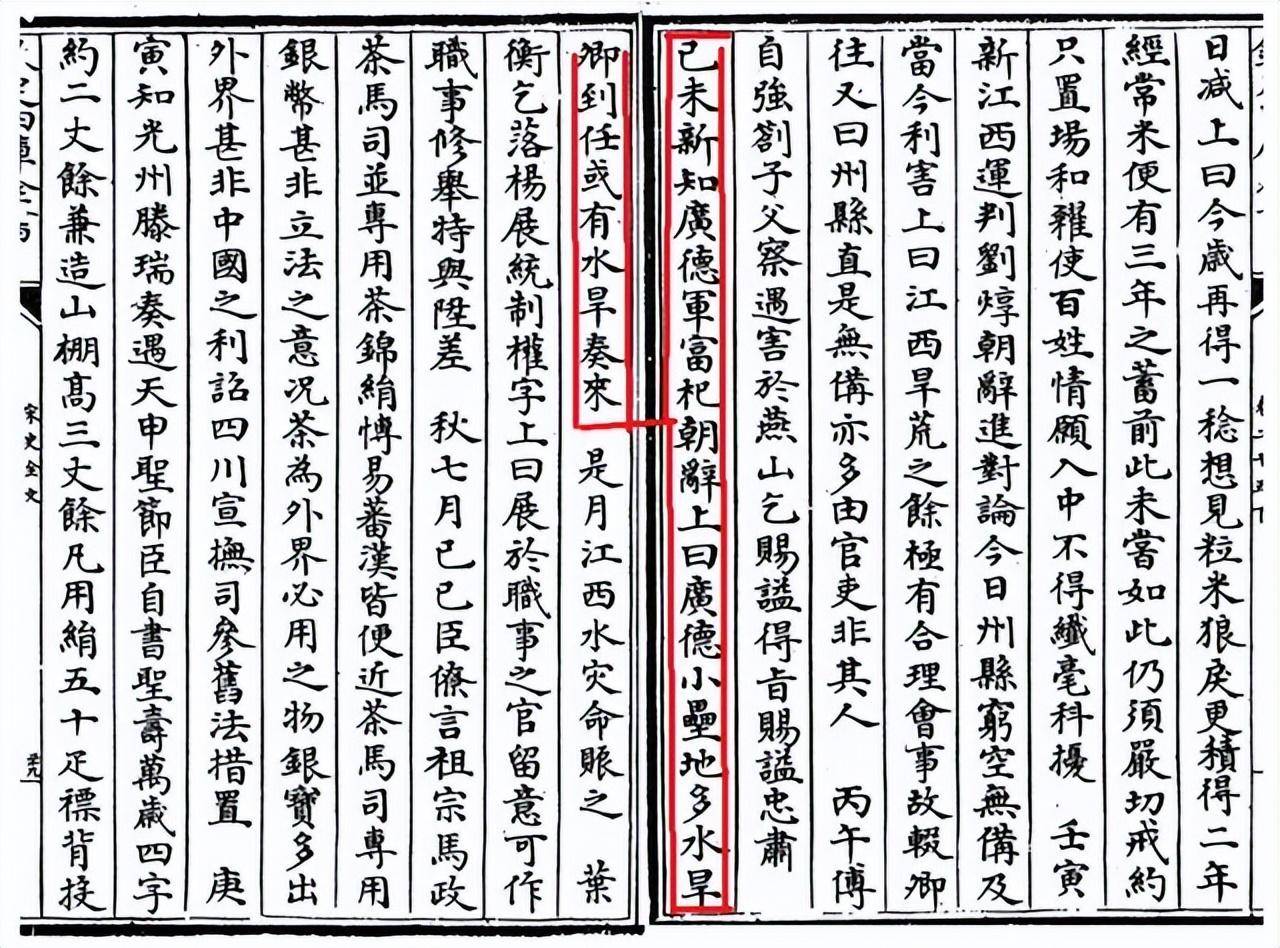 日减上曰今歳再得一稔想見粒米狼戾更積得二年
經常米便有三年之蓄前此未嘗如此仍須嚴切戒約
只置場和糴使百姓情願入中不得纖毫科擾　壬寅
新江西運判劉焞朝辭進對論今日州縣窮空無備及
當今利害上曰江西旱荒之餘極有合理會事故輟卿
往又曰州縣直是無備亦多由官吏非其人　丙午傅
自強劄子父察遇害於燕山乞賜諡得旨賜諡忠肅
己未新知廣德軍富杞朝辭上曰廣德小壘地多水旱
卿到任或有水旱奏來　是月江西水灾命賑之　葉
衡乞落楊展統制權字上曰展於職事之官留意可作
職事修舉特與陞差　秋七月己巳臣僚言祖宗馬政
茶馬司並專用茶錦絹博易蕃漢皆便近茶馬司專用
銀幣甚非立法之意况茶為外界必用之物銀寶多出
外界甚非中國之利詔四川宣撫司參舊法措置　庚
寅知光州滕瑞奏遇天申聖節臣自書聖壽萬歲四字
約二丈餘兼造山棚髙三丈餘凡用絹五十疋標背投
宋史全文